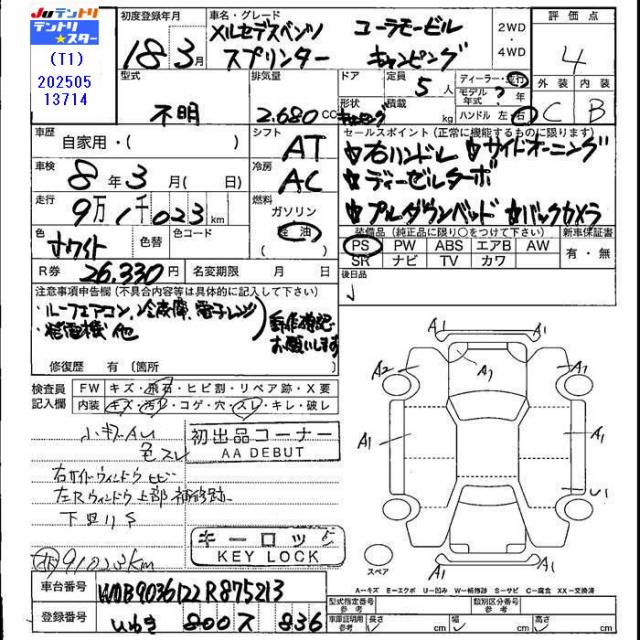 JUテントリ
テントリ★スター
(T1)
202505
13714
初度登録年月
18 3月
車名・グレード
メルセデスベンツ ユーラモービル
スプリンター キャンピング
2WD
・
4WD
評価点
4
外装 内装
C B
型式
不明
排気量
2.680CC
ドア
形状
定員
5人
積載
kg
ディーラー・並行
モデル年式 ? 年
ハンドル 左 右
車歴
自家用・( )
シフト
AT
車検
8年3月( 日)
冷房
AC
走行
9万1千023km
燃料
ガソリン
軽油
( )
色
ホワイト
色替
色コード
R券 26,330円
名変期限 月 日
セールスポイント(正常に機能するものに限ります)
☆右ハンドル ☆サイドオーニング
☆ディーゼルターボ
☆プルダウンベッド ☆バックカメラ
装備品(純正品に限り○をつけて下さい)
PS PW ABS エアB AW
SR ナビ TV カワ
新車保証書
有・無
後日品
注意事項申告欄(不具合内容等は具体的に記入して下さい)
・ルーフエアコン、冷蔵庫、電子レンジ
・発電機他
動作確認
お願いします
修復歴 有(箇所
検査員
記入欄
FW キズ・飛石・ヒビ割・リペア跡・X要
内装 キズ・汚れ・コゲ・穴・スレ・キレ・破レ
小キズAU
色スレ
初出品コーナー
AA DEBUT
右サイドウィンドウ ヒビ
左Rウィンドウ上部 補修跡
下回りS
91023km
キーロック
KEY LOCK
A1 A1
A2 A1 A1
A1 A1
U1
スペア
A1
A…キズ E…エクボ U…凹み W…補修跡 S…サビ C…腐食 XX…交換済
車台番号 WDB9036122R875213
登録番号 いわき 800 ス 836
型式指定番号
参考
類別区分番号
参考
車庫証明用
参考
長さ cm
幅 cm
高さ cm